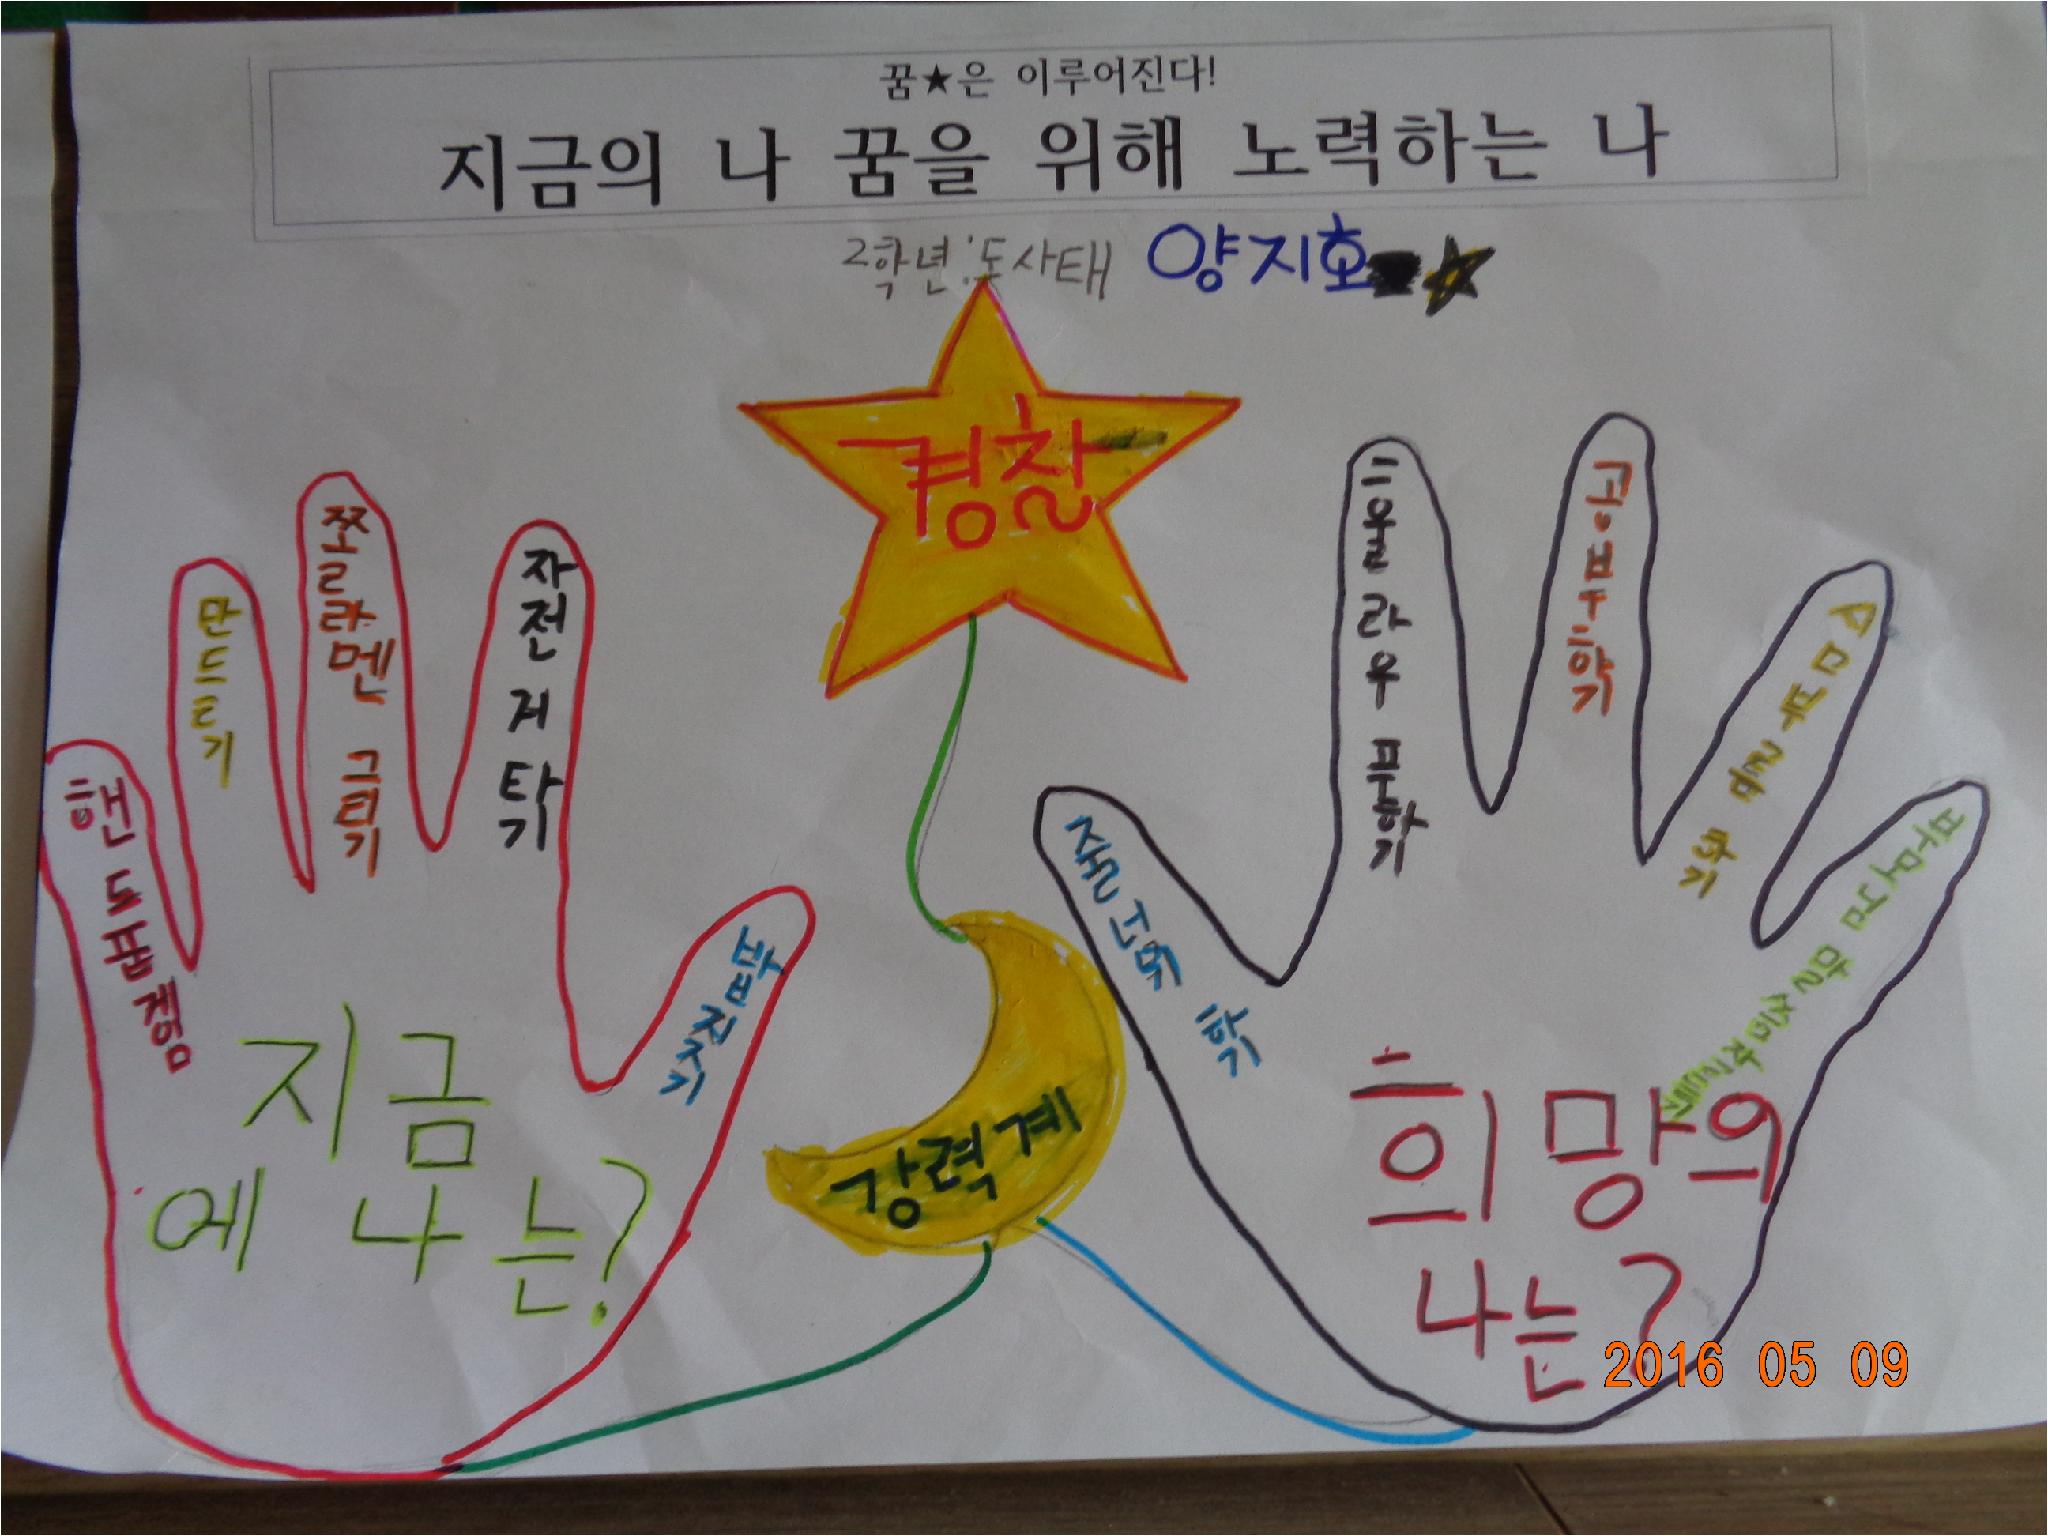 꿈★은 이루어진다!
지금의 나 꿈을 위해 노력하는 나
2학년:도사태 양지호
경찰
강력계
핸드폰겜
만드기
쫄라멘 그리기
자전거 타기
밥 진지기
지금
에 나는?
줄넘기 하기
훌라후프하기
공부하기
심부름 하기
부모님 말씀
희망의
나는?
2016 05 09